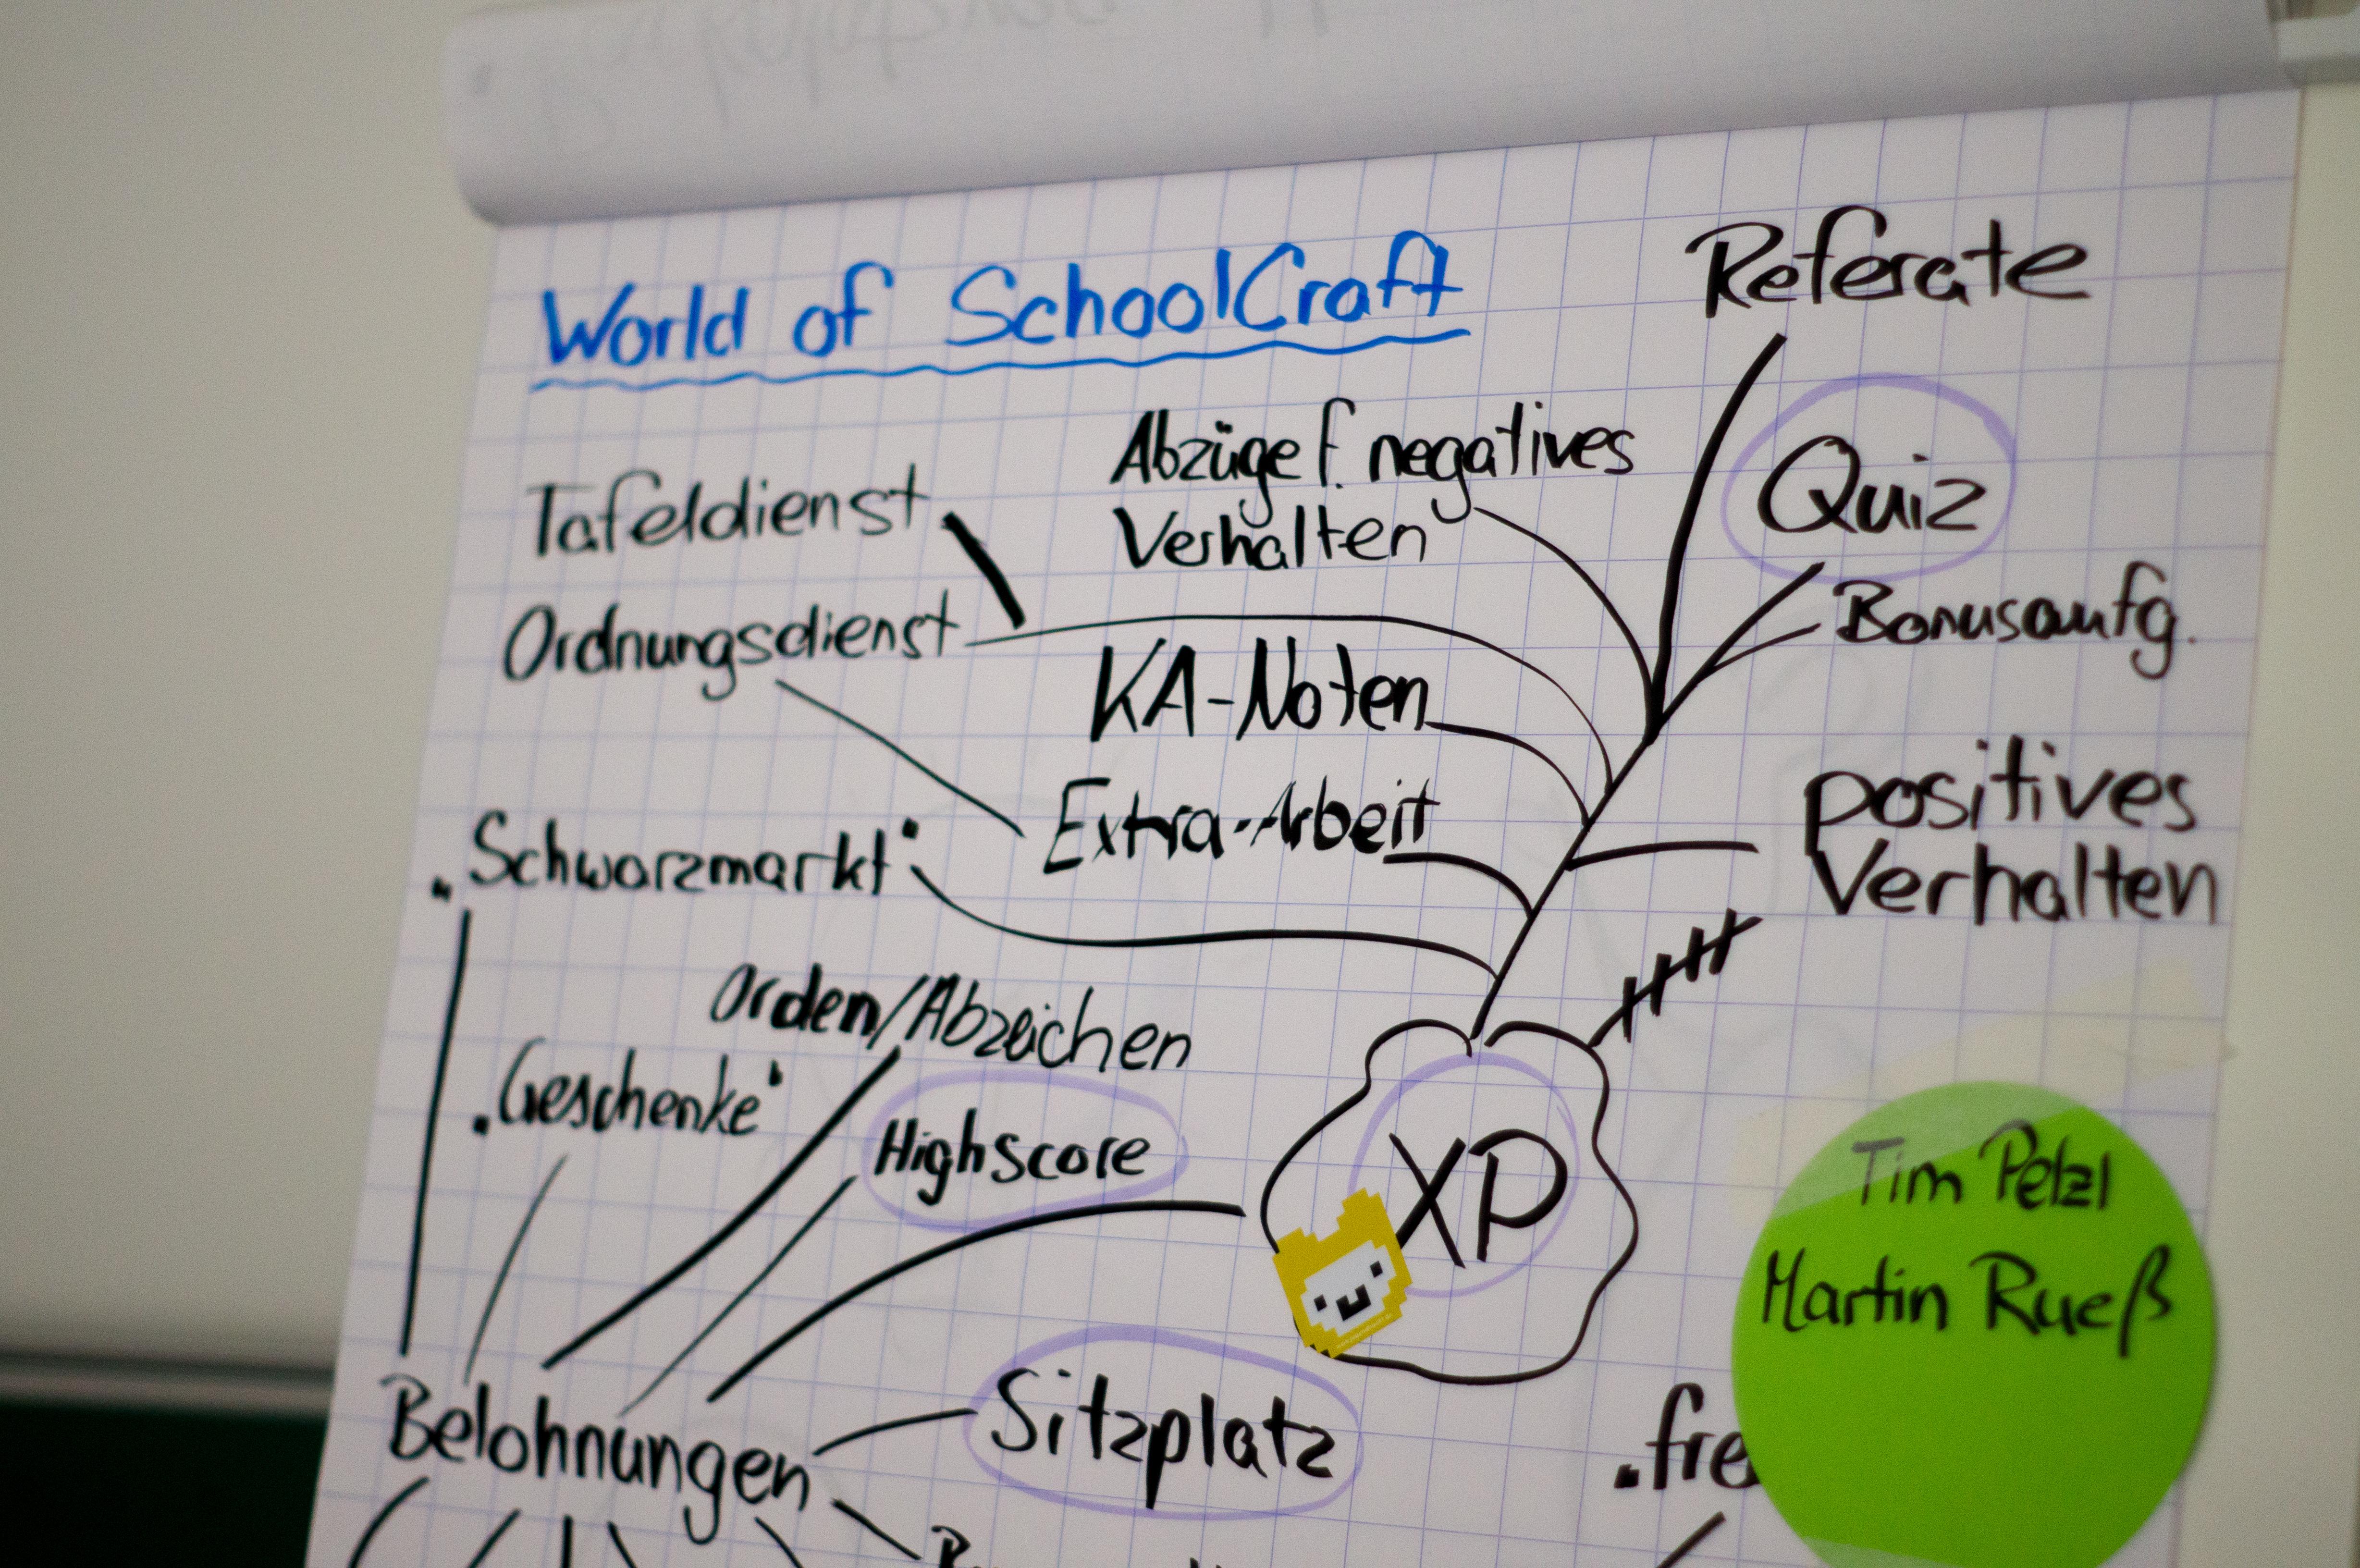 World of SchoolCraft
Referate
Abzüge f. negatives
Verhalten
Quiz
Tafeldienst
Bonusaufg.
Ordnungsdienst
KA-Noten
positives
Verhalten
Extra-Arbeit
„Schwarzmarkt"
Orden/Abzeichen
„Geschenke"
Highscore
XP
Tim Pelzl
Martin Rueß
Belohnungen
Sitzplatz